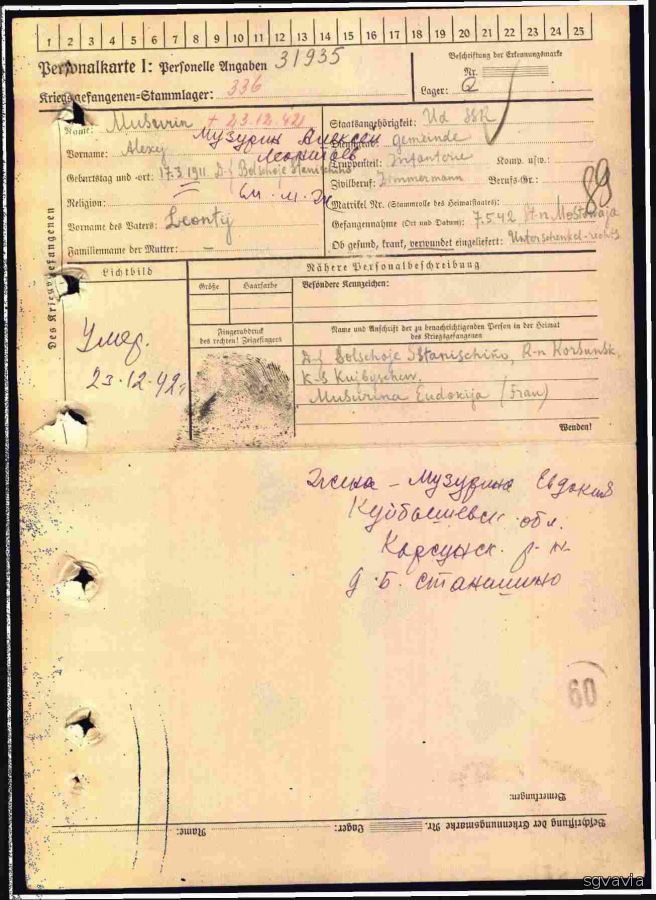 1 2 3 4 5 6 7 8 9 10 11 12 13 14 15 16 17 18 19 20 21 22 23 24 25
Personalkarte I: Personelle Angaben 31935
Beschriftung der Erkennungsmarke
Nr.
Kriegsgefangenen-Stammlager: 336
Lager: Q
Des Kriegsgefangenen
Name: Musurin + 23.12.42
Музурин Алексей
Vorname: Alexy
Леонтьев
Geburtstag und -ort: 17.3.1911 D-f Bolschoje Stanischino
Religion:
Vorname des Vaters: Leonty
Familienname der Mutter: –
Staatsangehörigkeit: Ud SSR
Dienstgrad: gemeinde
Truppenteil: Infanterie Komp. usw.:
Zivilberuf: Zimmermann Berufs-Gr.:
89
Matrikel Nr. (Stammrolle des Heimatstaates):
Gefangennahme (Ort und Datum): 7.5.42 St-n Mostowaja
Ob gesund, krank, verwundet eingeliefert: Unterschenkel-rechts
Lichtbild
Nähere Personalbeschreibung
Größe
Haarfarbe
Besondere Kennzeichen:
Fingerabdruck
des rechten! Zeigefingers
Name und Anschrift der zu benachrichtigenden Person in der Heimat
des Kriegsgefangenen
D-f Bolschoje Stanischino, R-n Korsunsk,
K-S Kujbyschew,
Musurina Eudokija (Frau)
Wenden!
Умер.
23.12.42г
Жена – Музурина Евдокия
Куйбышевск. обл.
Карсунск. р-н.
д. Б. Станишино
60
Bemerkungen:
Beschriftung der Erkennungsmarke Nr.
Lager:
Name:
sgvavia